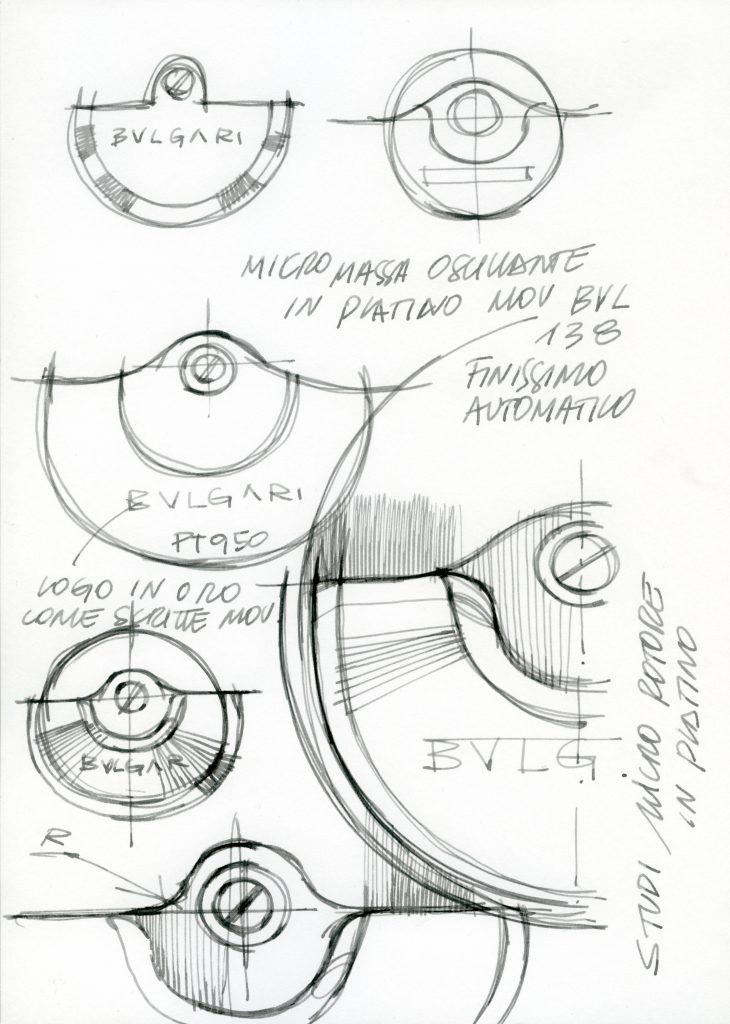 BVLGARI
MICRO MASSA OSCILLANTE
IN PLATINO MOV BVL
138
FINISSIMO
AUTOMATICO
BVLGARI
PT950
LOGO IN ORO
COME SCRITTE MOV
BVLGARI
BVLG
R
STUDI MICRO ROTORE
IN PLATINO